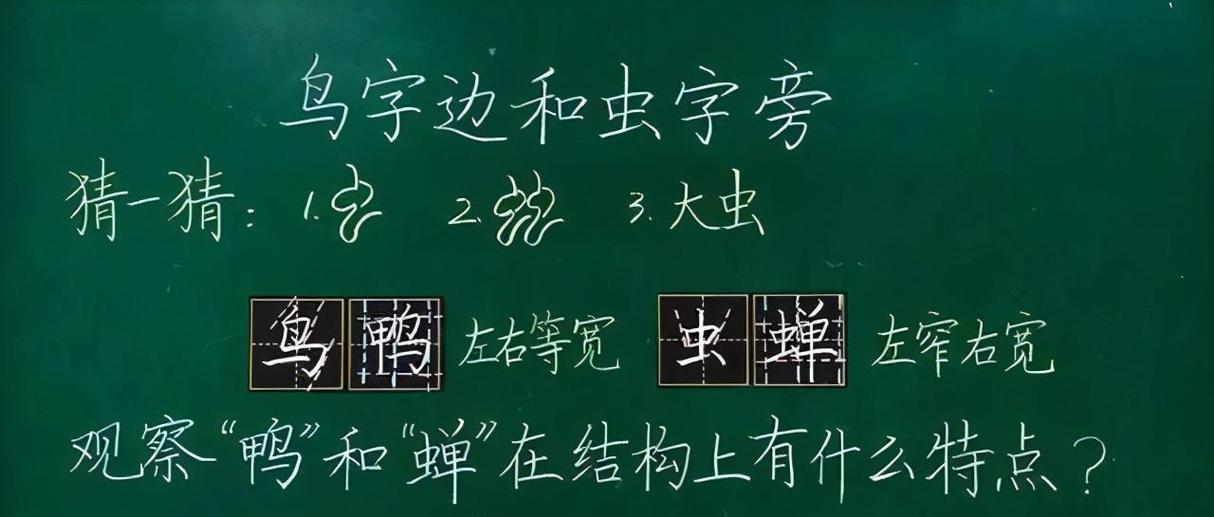 鸟字边和虫字旁
猜一猜：1. 2. 3.大虫
鸟鸭 左右等宽 虫蝉 左窄右宽
观察“鸭”和“蝉”在结构上有什么特点？